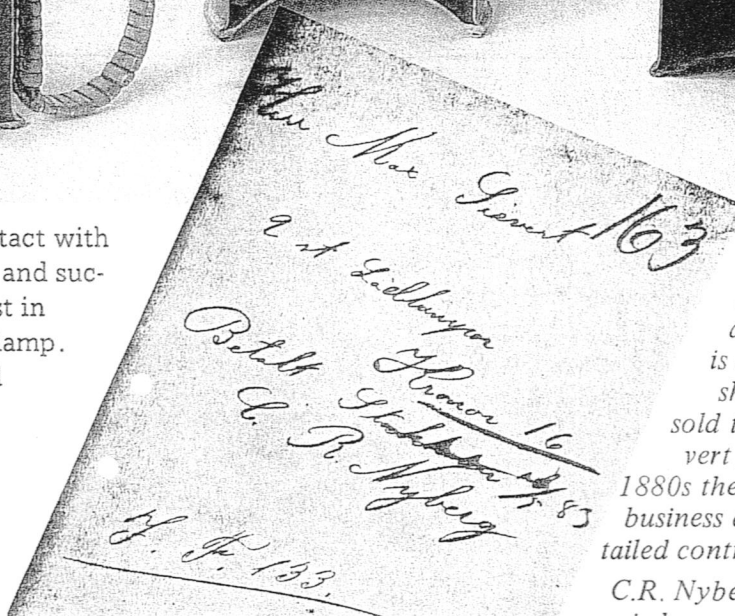 tact with
and suc-
st in
lamp.
Herr Max Sievert 163
2 st Lödlampor
Kronor 16
Betalt Stockholm 83
C. R. Nyberg
F. 133.
is
sh
sold t
vert
1880s the
business
tailed cont
C.R. Nybe